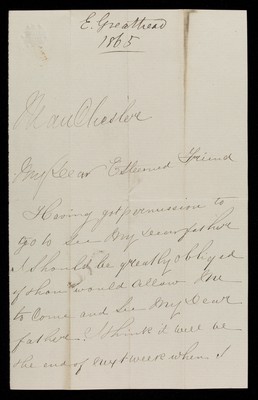 E. Greathead
1865
Manchester
My Dear Esteemed Friend
Having got permission to
go to See My Dear father
I Should be greatly obliged
if thou would allow Me
to Come and See My Dear
father I think it will be
the end of next week when I